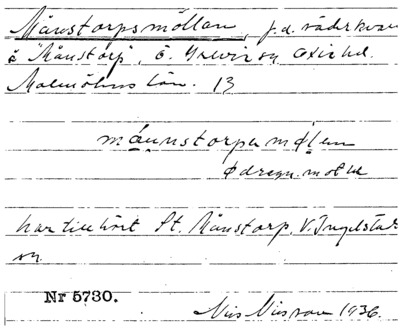 Månstorpsmöllan, f.d. väderkvarn
å "Månstorp", Ö. Grevie sn Oxie hd.
Malmöhus län. 13
månnstorpa mølan
har tillhört St. Månstorp, V. Ingelstad
sn
Nr 5730.
Nils Nilsson 1936.